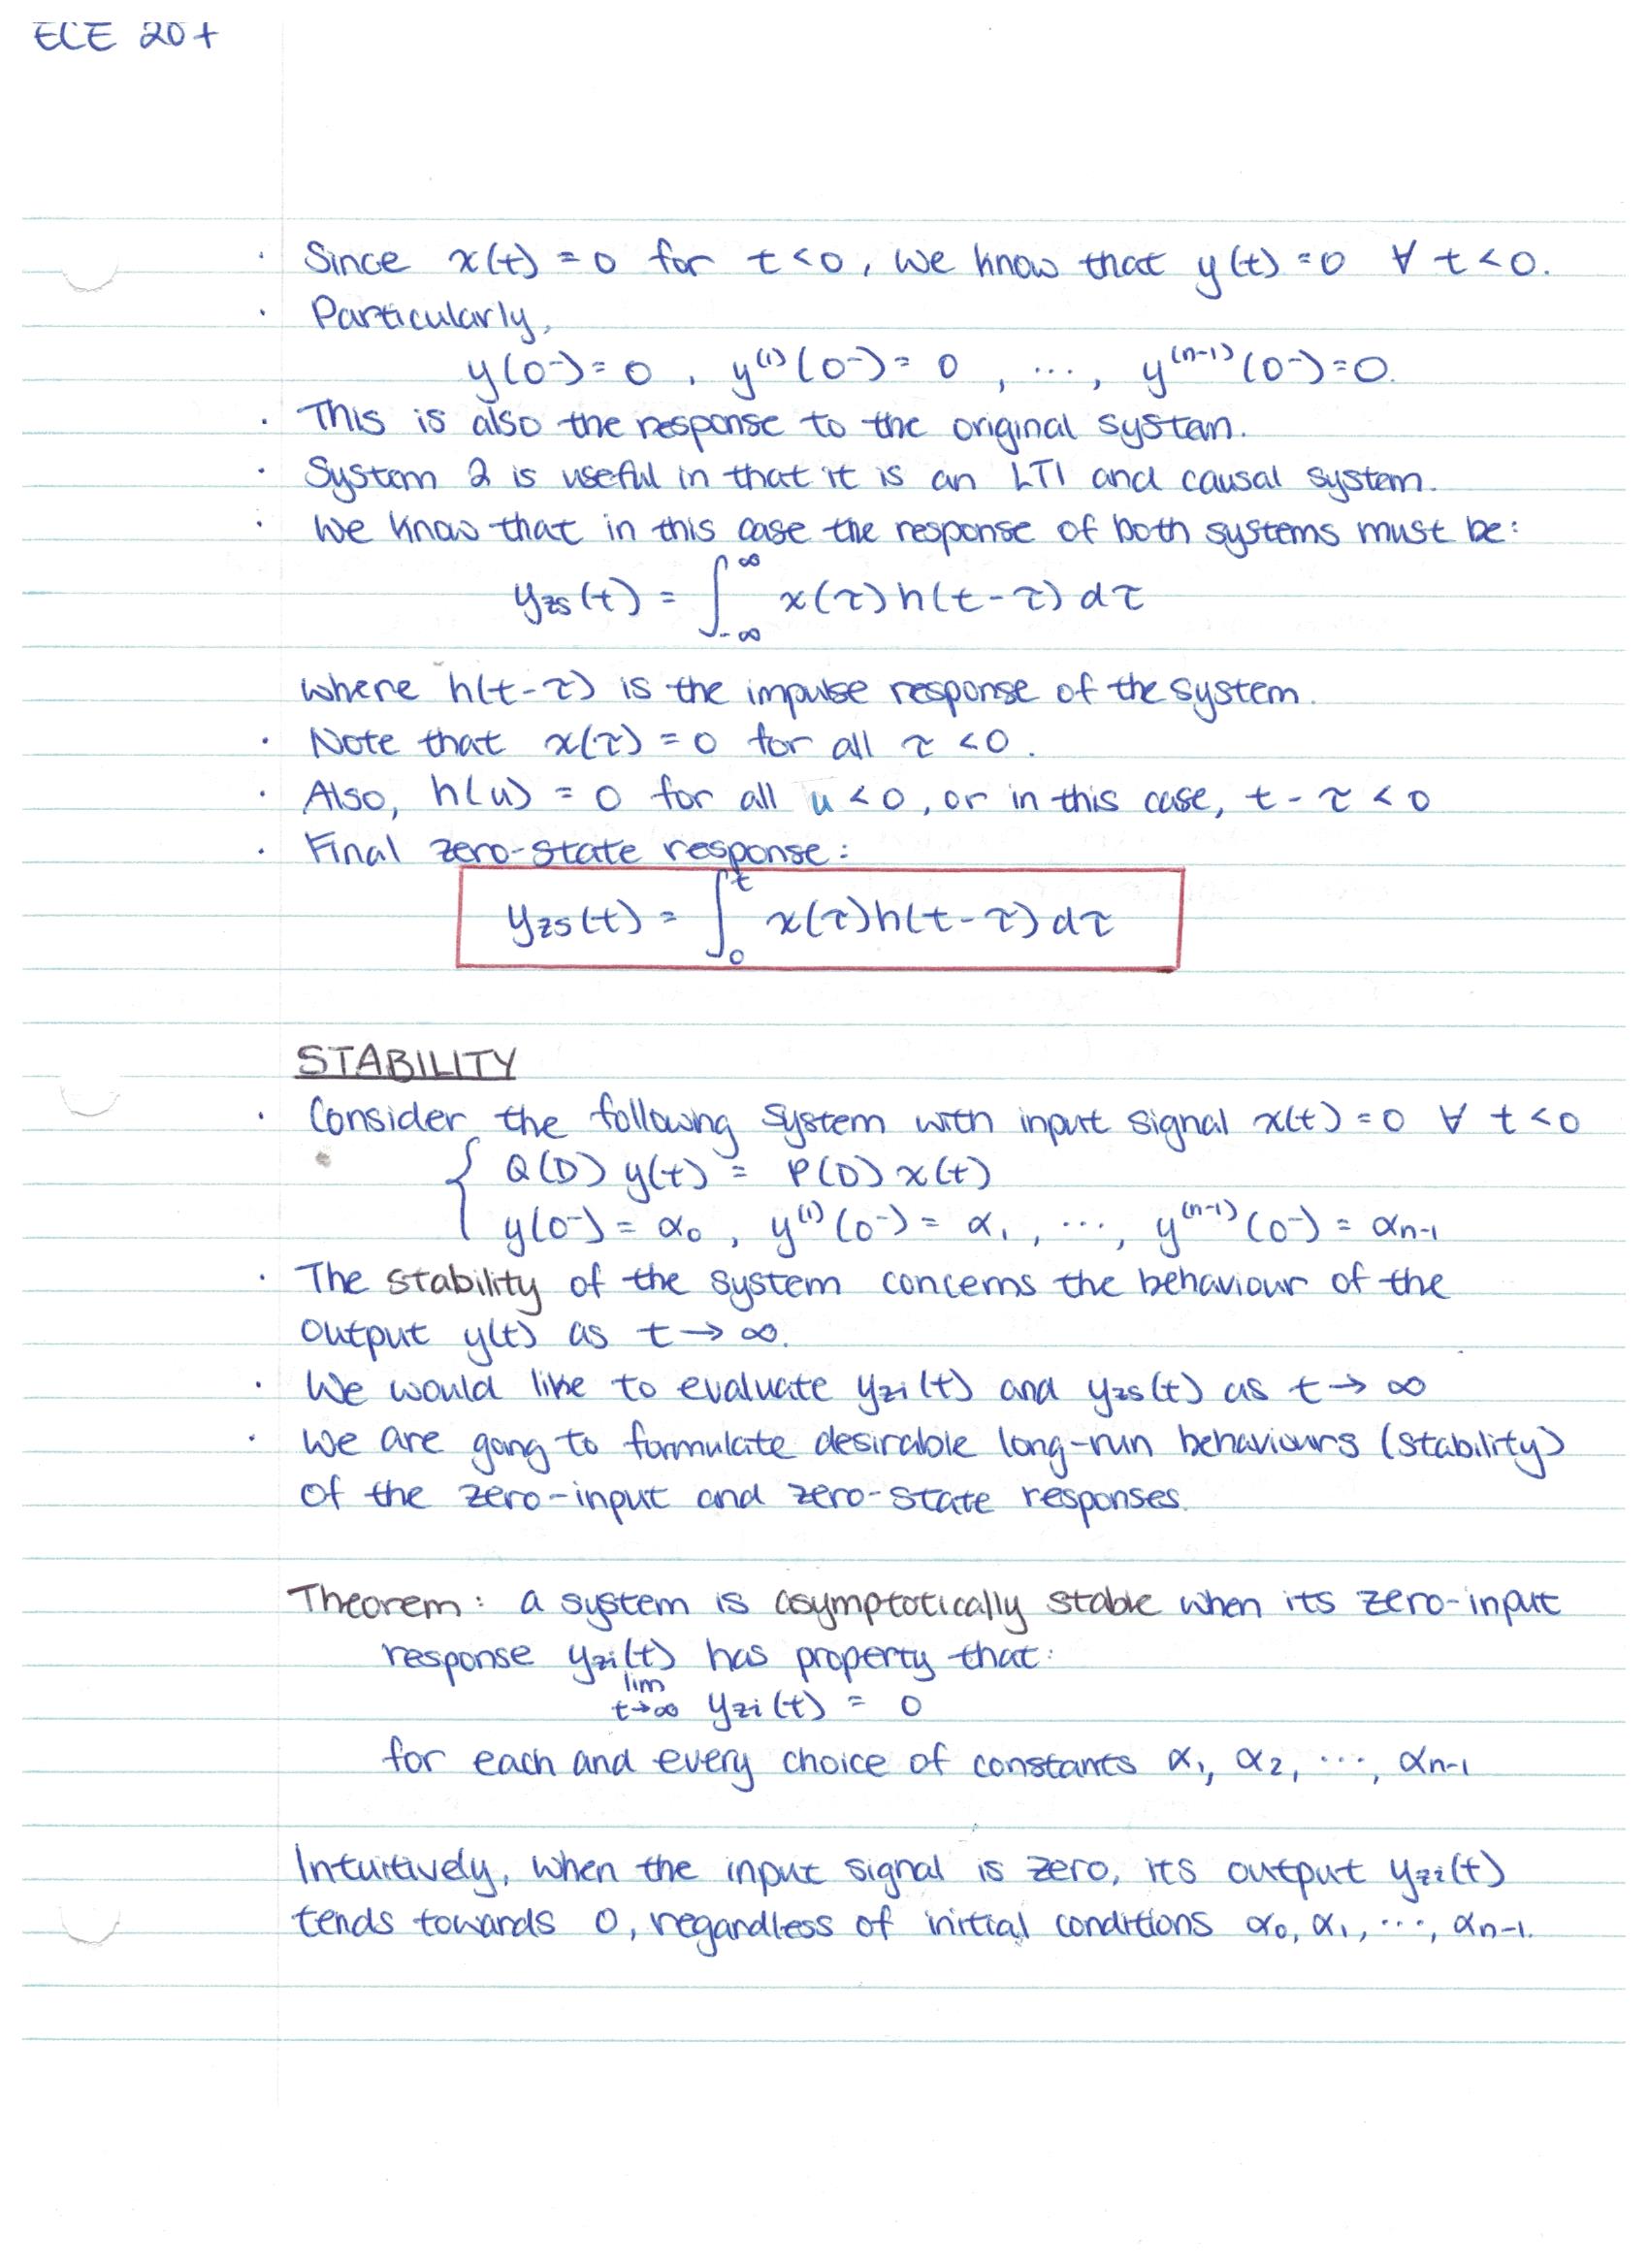 ECE 207
· Since x(t) = 0 for t < 0, we know that y(t) = 0 ∀ t < 0.
· Particularly,
y(0⁻) = 0 , y⁽¹⁾(0⁻) = 0 , ..., y⁽ⁿ⁻¹⁾(0⁻) = 0.
· This is also the response to the original system.
· System 2 is useful in that it is an LTI and causal system.
· We know that in this case the response of both systems must be:
y_zs(t) = ∫_{-∞}^{∞} x(τ) h(t-τ) dτ
where h(t-τ) is the impulse response of the system.
· Note that x(τ) = 0 for all τ < 0.
· Also, h(u) = 0 for all u < 0, or in this case, t - τ < 0
· Final zero-state response:
y_zs(t) = ∫_0^t x(τ)h(t-τ) dτ
STABILITY
· Consider the following system with input signal x(t) = 0 ∀ t < 0
{ Q(D) y(t) = P(D) x(t)
y(0⁻) = α₀ , y⁽¹⁾(0⁻) = α₁ , ..., y⁽ⁿ⁻¹⁾(0⁻) = αn-1
· The stability of the system concerns the behaviour of the
output y(t) as t → ∞.
· We would like to evaluate y_zi(t) and y_zs(t) as t → ∞
· We are going to formulate desirable long-run behaviours (stability)
of the zero-input and zero-state responses.
Theorem: a system is asymptotically stable when its zero-input
response y_zi(t) has property that:
lim t→∞ y_zi(t) = 0
for each and every choice of constants α₁, α₂, ..., αn-1
Intuitively, when the input signal is zero, its output y_zi(t)
tends towards 0, regardless of initial conditions α₀, α₁, ..., αn-1.